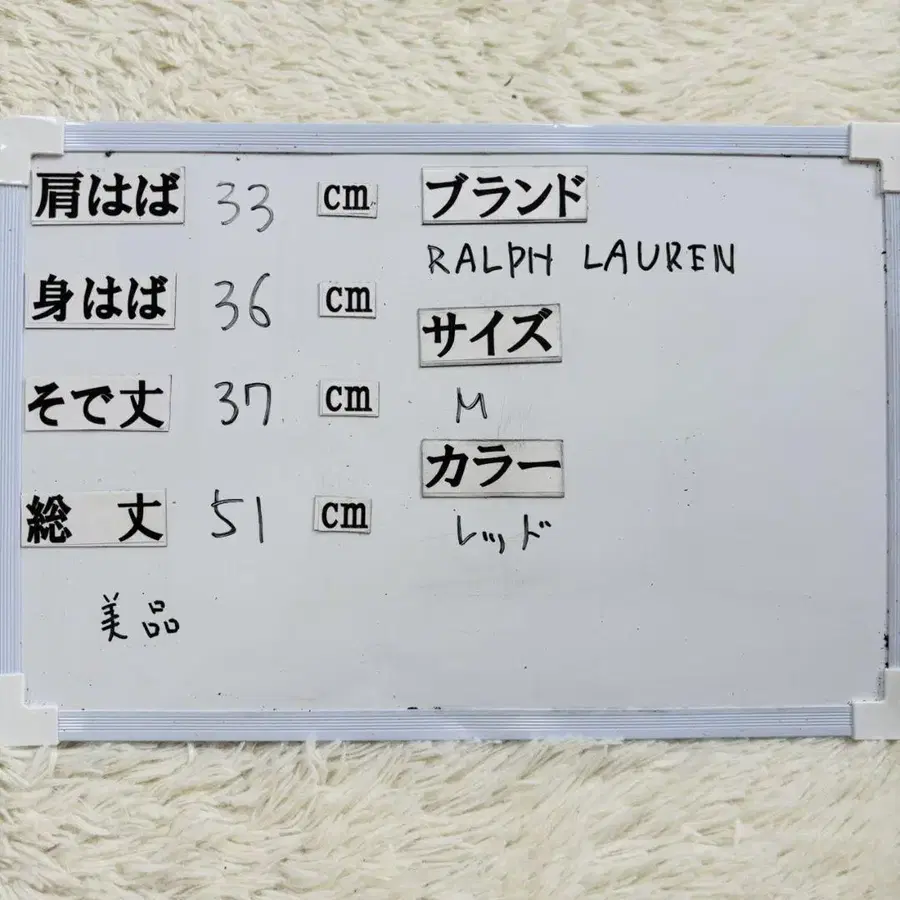 肩はば 33 cm
身はば 36 cm
そで丈 37 cm
総 丈 51 cm
美品
ブランド
RALPH LAUREN
サイズ
M
カラー
レッド